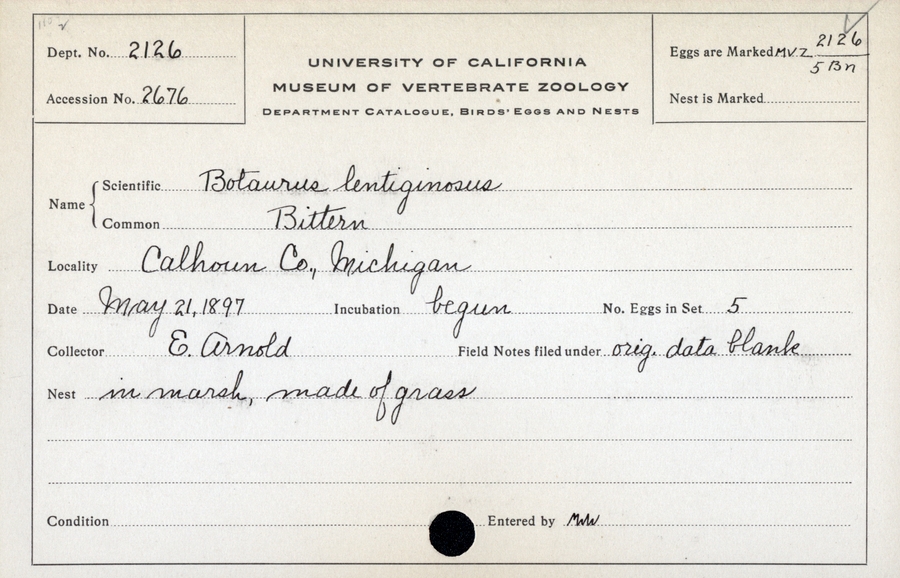 Dept. No. 2126
Accession No. 2676
UNIVERSITY OF CALIFORNIA
MUSEUM OF VERTEBRATE ZOOLOGY
DEPARTMENT CATALOGUE, BIRDS' EGGS AND NESTS
Eggs are Marked MVZ 2126
5 Bn
Nest is Marked
Name
Scientific Botaurus lentiginosus
Common Bittern
Locality Calhoun Co., Michigan
Date May 21, 1897 Incubation begun No. Eggs in Set 5
Collector E. Arnold Field Notes filed under orig. data blank
Nest in marsh, made of grass
Condition Entered by